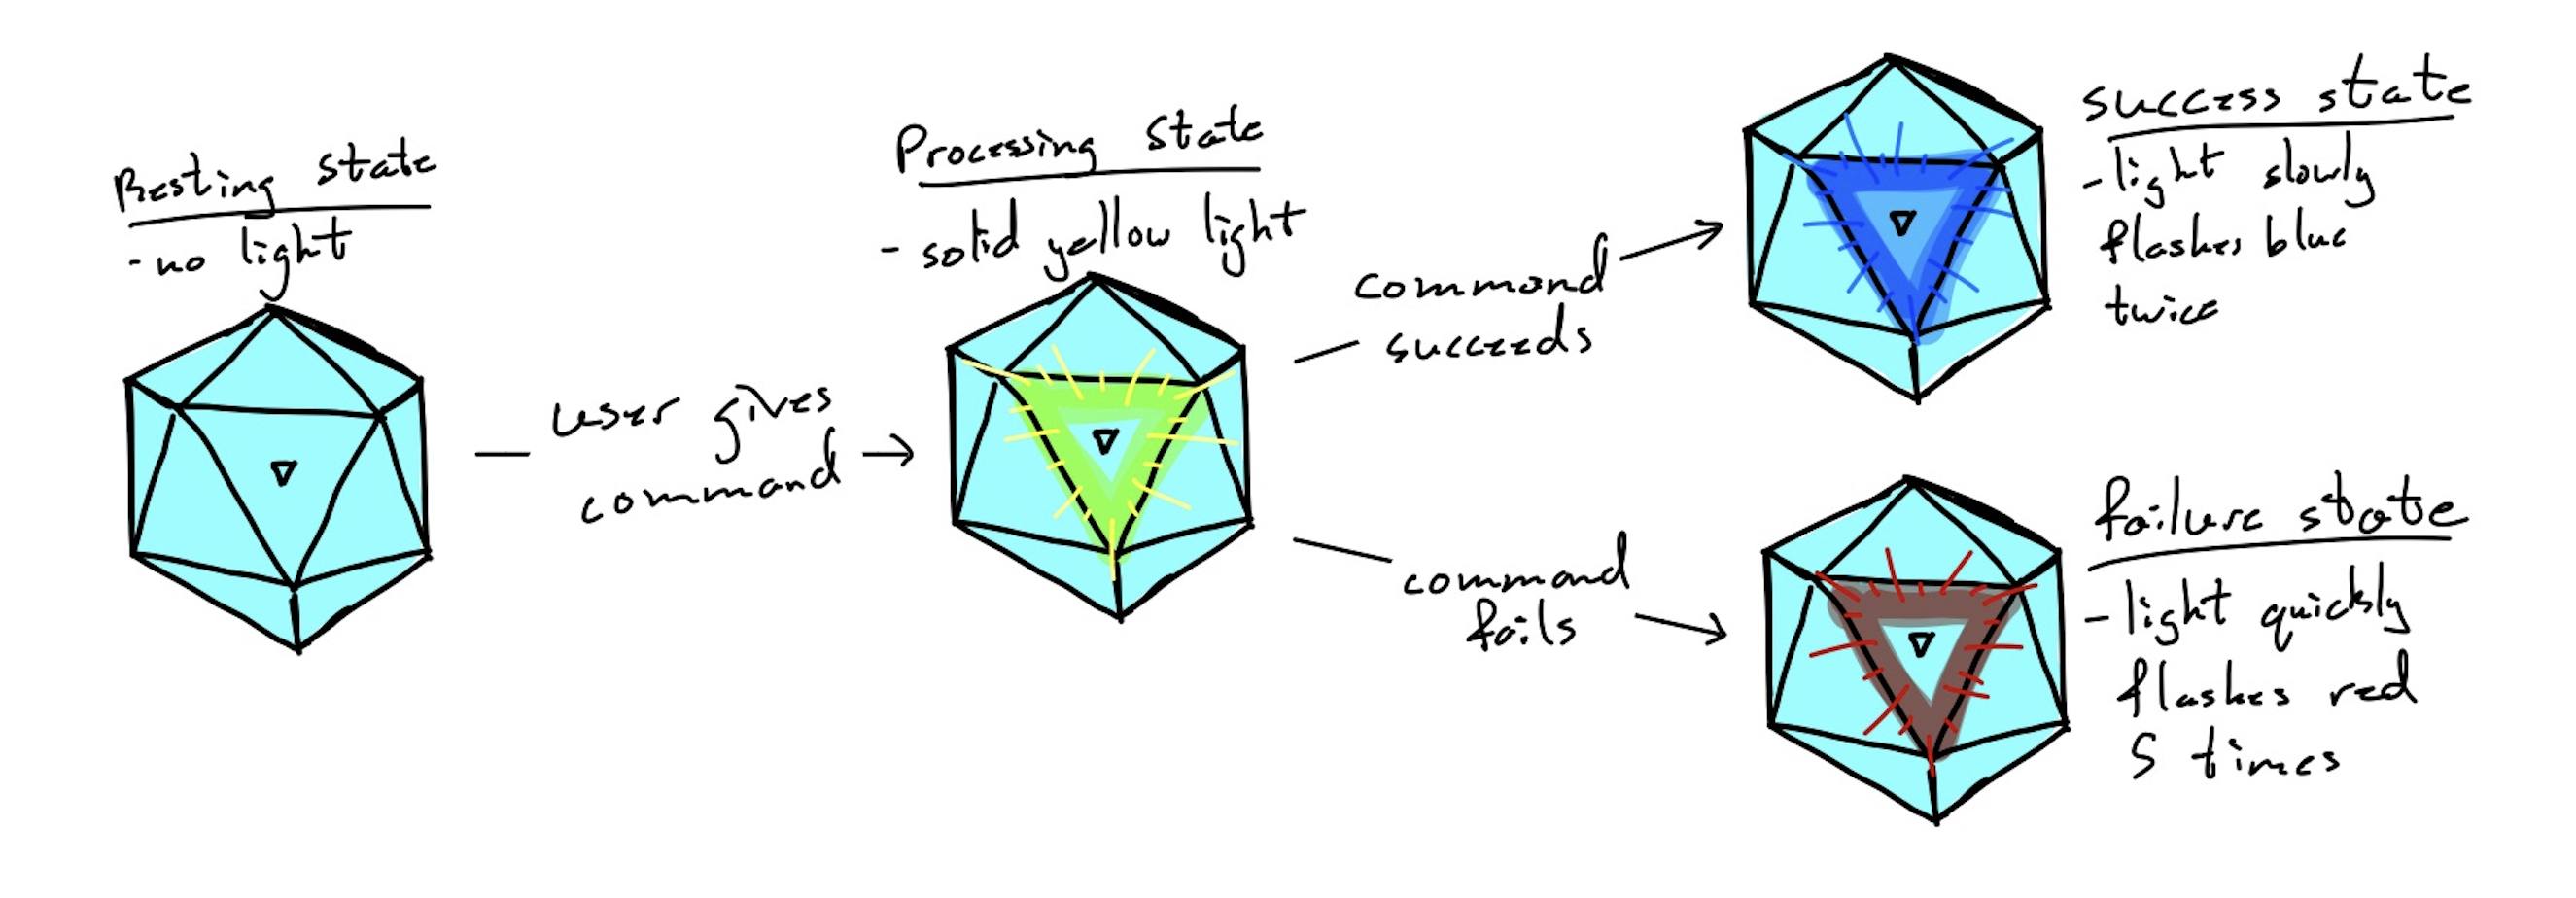 Resting state
- no light
user gives
command
Processing state
- solid yellow light
command
succeeds
success state
- light slowly
flashes blue
twice
command
fails
failure state
- light quickly
flashes red
5 times